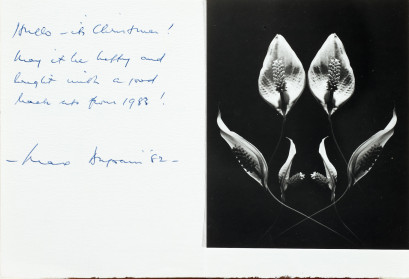 Hello – its Christmas!
May it be happy and
bright with a good
kick into from 1983!
– Max Dupain '82 –